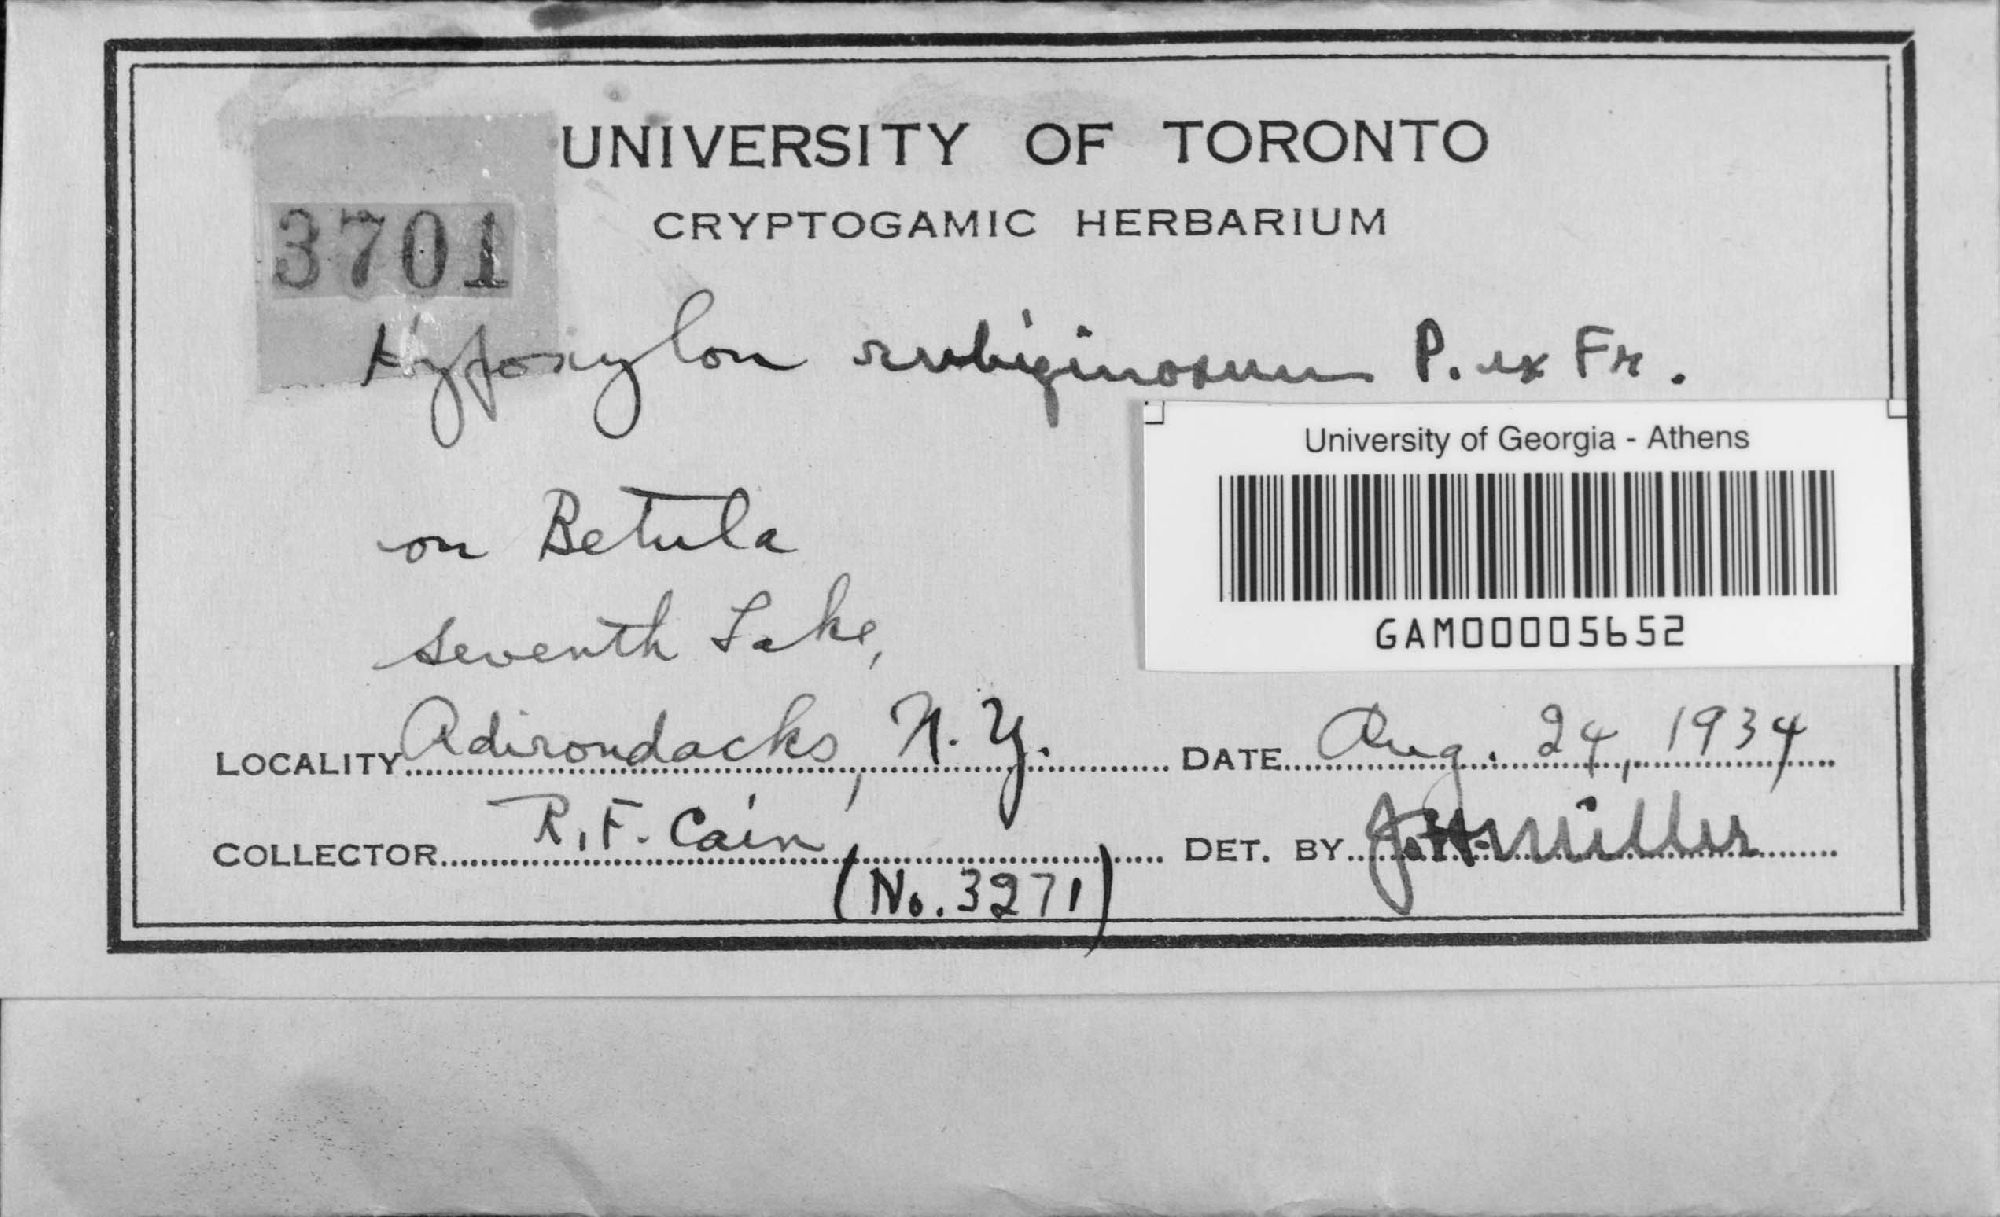 UNIVERSITY OF TORONTO
CRYPTOGAMIC HERBARIUM
3701
Hypoxylon rubiginosum P. ex Fr.
University of Georgia - Athens
GAM00005652
on Betula
Seventh Lake,
LOCALITY Adirondacks, N. Y. DATE Aug. 24, 1934
COLLECTOR R. F. Cain DET. BY J. H. Miller
(No. 3271)